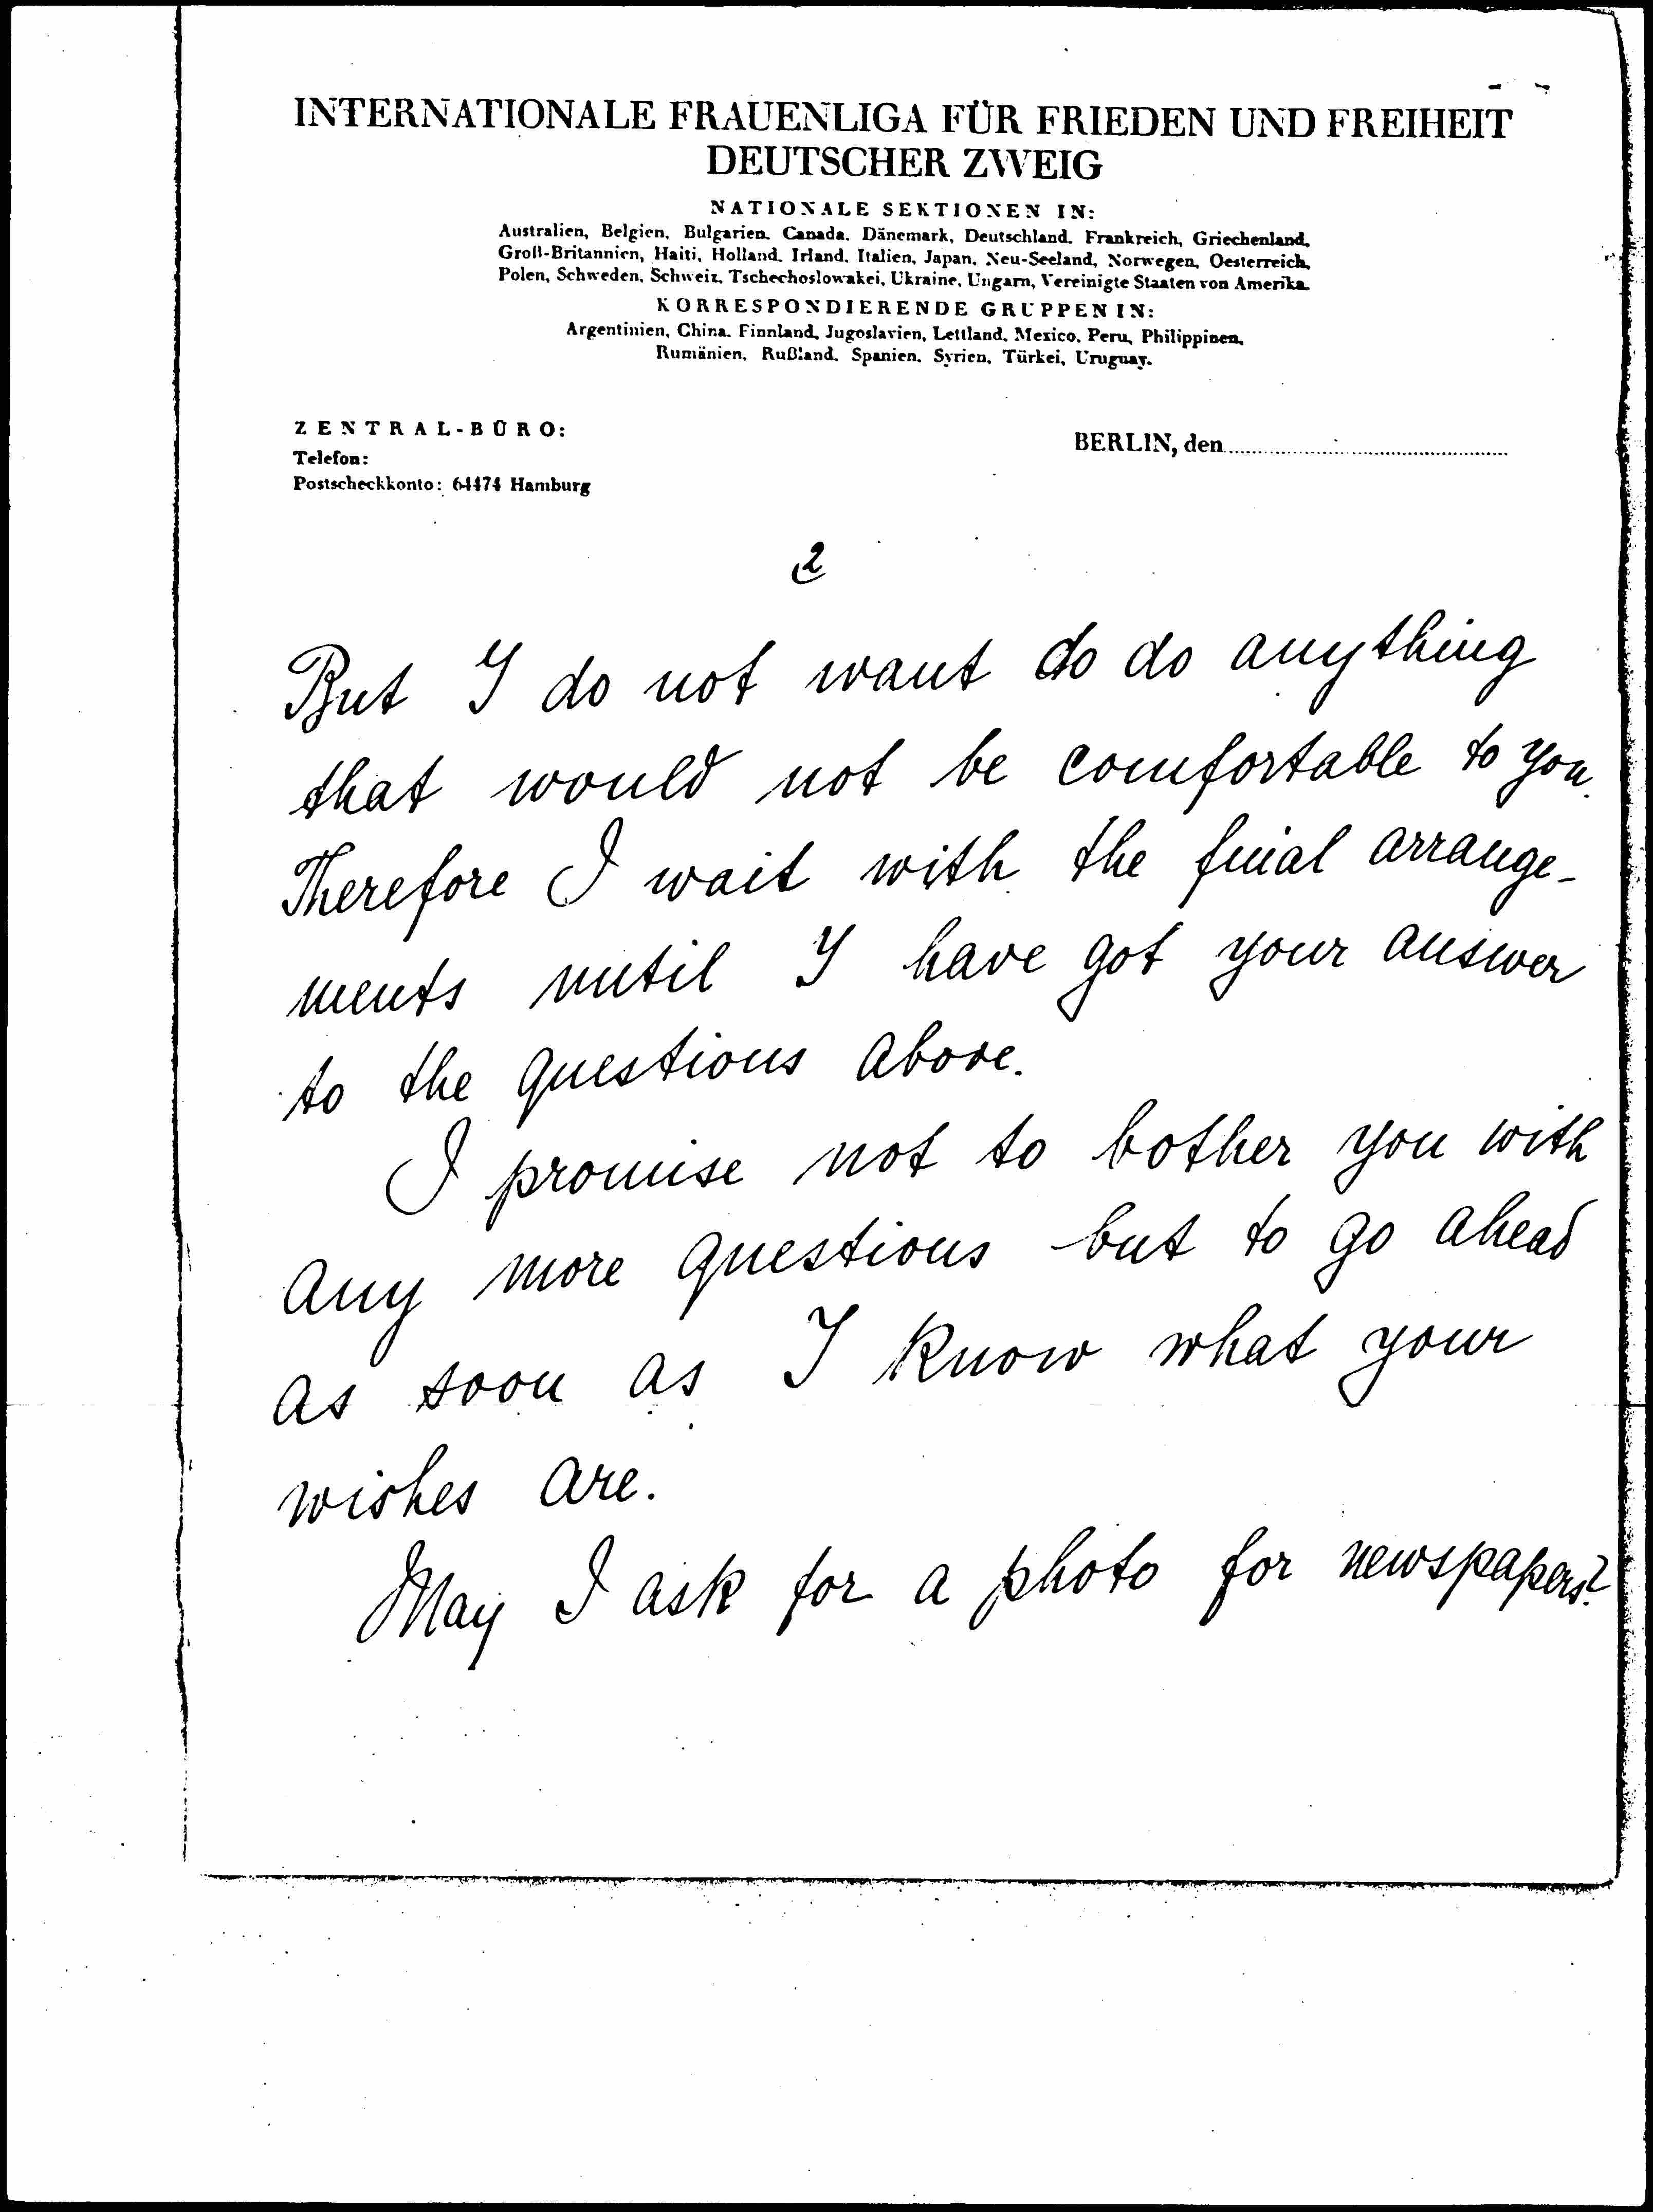 INTERNATIONALE FRAUENLIGA FÜR FRIEDEN UND FREIHEIT
DEUTSCHER ZWEIG
NATIONALE SEKTIONEN IN:
Australien, Belgien, Bulgarien. Canada. Dänemark, Deutschland. Frankreich, Griechenland,
Groß-Britannien, Haiti, Holland. Irland. Italien, Japan, Neu-Seeland, Norwegen, Oesterreich,
Polen, Schweden, Schweiz, Tschechoslowakei, Ukraine, Ungarn, Vereinigte Staaten von Amerika.
KORRESPONDIERENDE GRUPPEN IN:
Argentinien, China. Finnland, Jugoslavien, Lettland. Mexico. Peru, Philippinen,
Rumänien, Rußland. Spanien. Syrien, Türkei, Uruguay.
ZENTRAL-BÜRO:
BERLIN, den
Telefon:
Postscheckkonto: 64474 Hamburg
2
But I do not want do do anything
that would not be comfortable to you.
Therefore I wait with the final arrange-
ments until I have got your answer
to the questions above.
I promise not to bother you with
any more questions but to go ahead
as soon as I know what your
wishes are.
May I ask for a photo for newspapers?